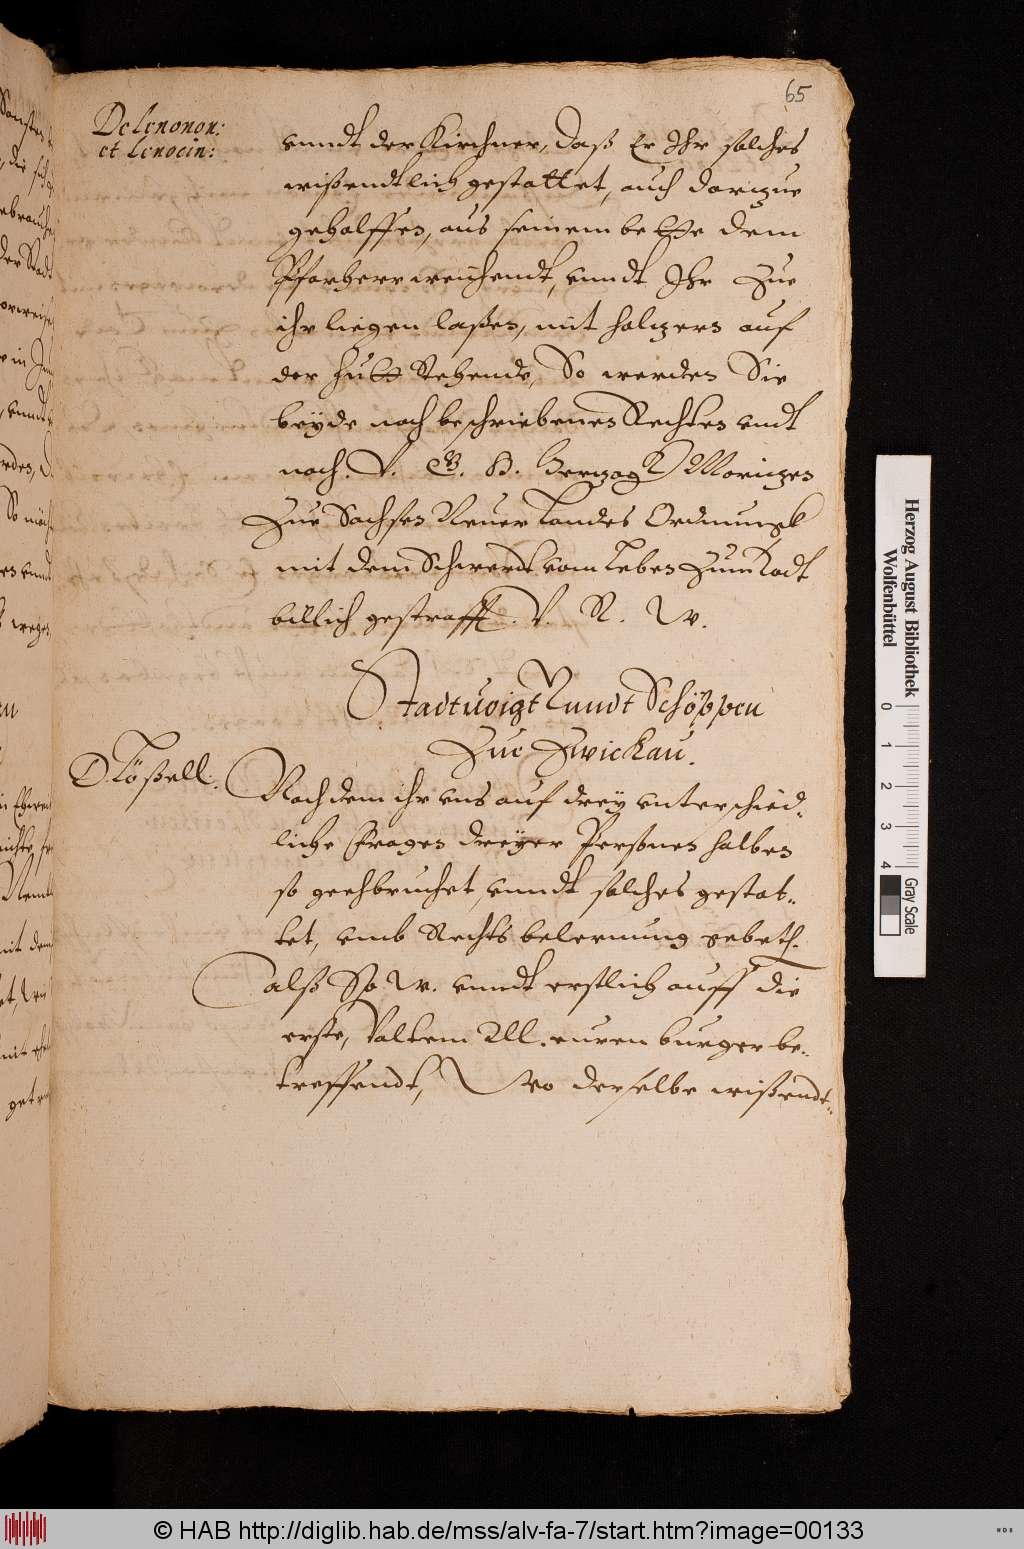 65
De lenonon:
et lenocin:
vnndt der Kirchner, daß Er Ihr solches
wißendtlich gestattet, auch darzue
geholffen, aus seinem bette dem
Pfarherr weichendt, vnndt Ihr Zue
ihr liegen laßen, mit haltzers auf
der hutt stehende, So werden Sie
beyde nach beschriebenen Rechten vndt
nach. V. G. H. Herzog Moritzen
Zue Sachsen Neuer Landes Ordnungk
mit dem Schwerdt vom Leben Zum Todt
billich gestrafft. V. R. W.
Stadtuoigt vnndt Schöppen
Zue Zwickau.
Plößell:
Nachdem ihr vns auf drey vnterschied-
liche Fragen dreyer Personen halben
so geehbruchet, vnndt solches gestat-
tet, vmb Rechts belernung gebeth.
alß Sp. W. vnndt erstlich auff die
erste, Valten All. euren burger be-
treffendt, Wo derselbe wißendt-
Herzog August Bibliothek
Wolfenbüttel
0 1 2 3 4
Gray Scale
© HAB http://diglib.hab.de/mss/alv-fa-7/start.htm?image=00133